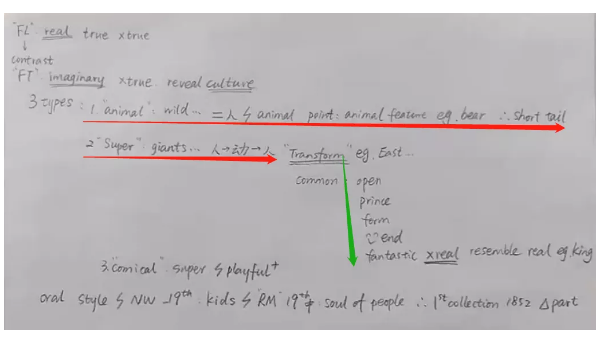 "FL" real true xtrue
↓
contrast
"FT" imaginary xtrue. reveal culture
3 types: 1. "animal": mild... =人 ϟ animal point: animal feature eg. bear ∴ short tail
2 "Super" giants... 人→动→人 "Transform" eg. East...
common open
prince
form
end
fantastic xreal resemble real eg. king
3. "comical" super ϟ playful+
oral style ϟ NW 19th. kids ϟ "RM" 19th 中 soul of people ∴ 1st collection 1852 Δ part